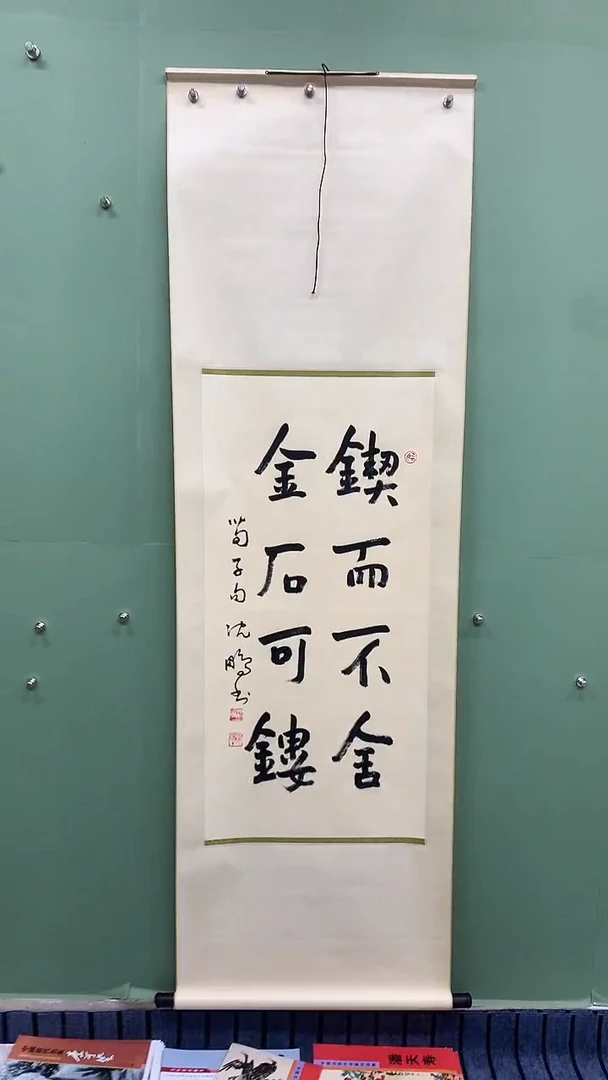 鍥而不舍
金石可鏤
荀子句 沈鵬书
潘天寿